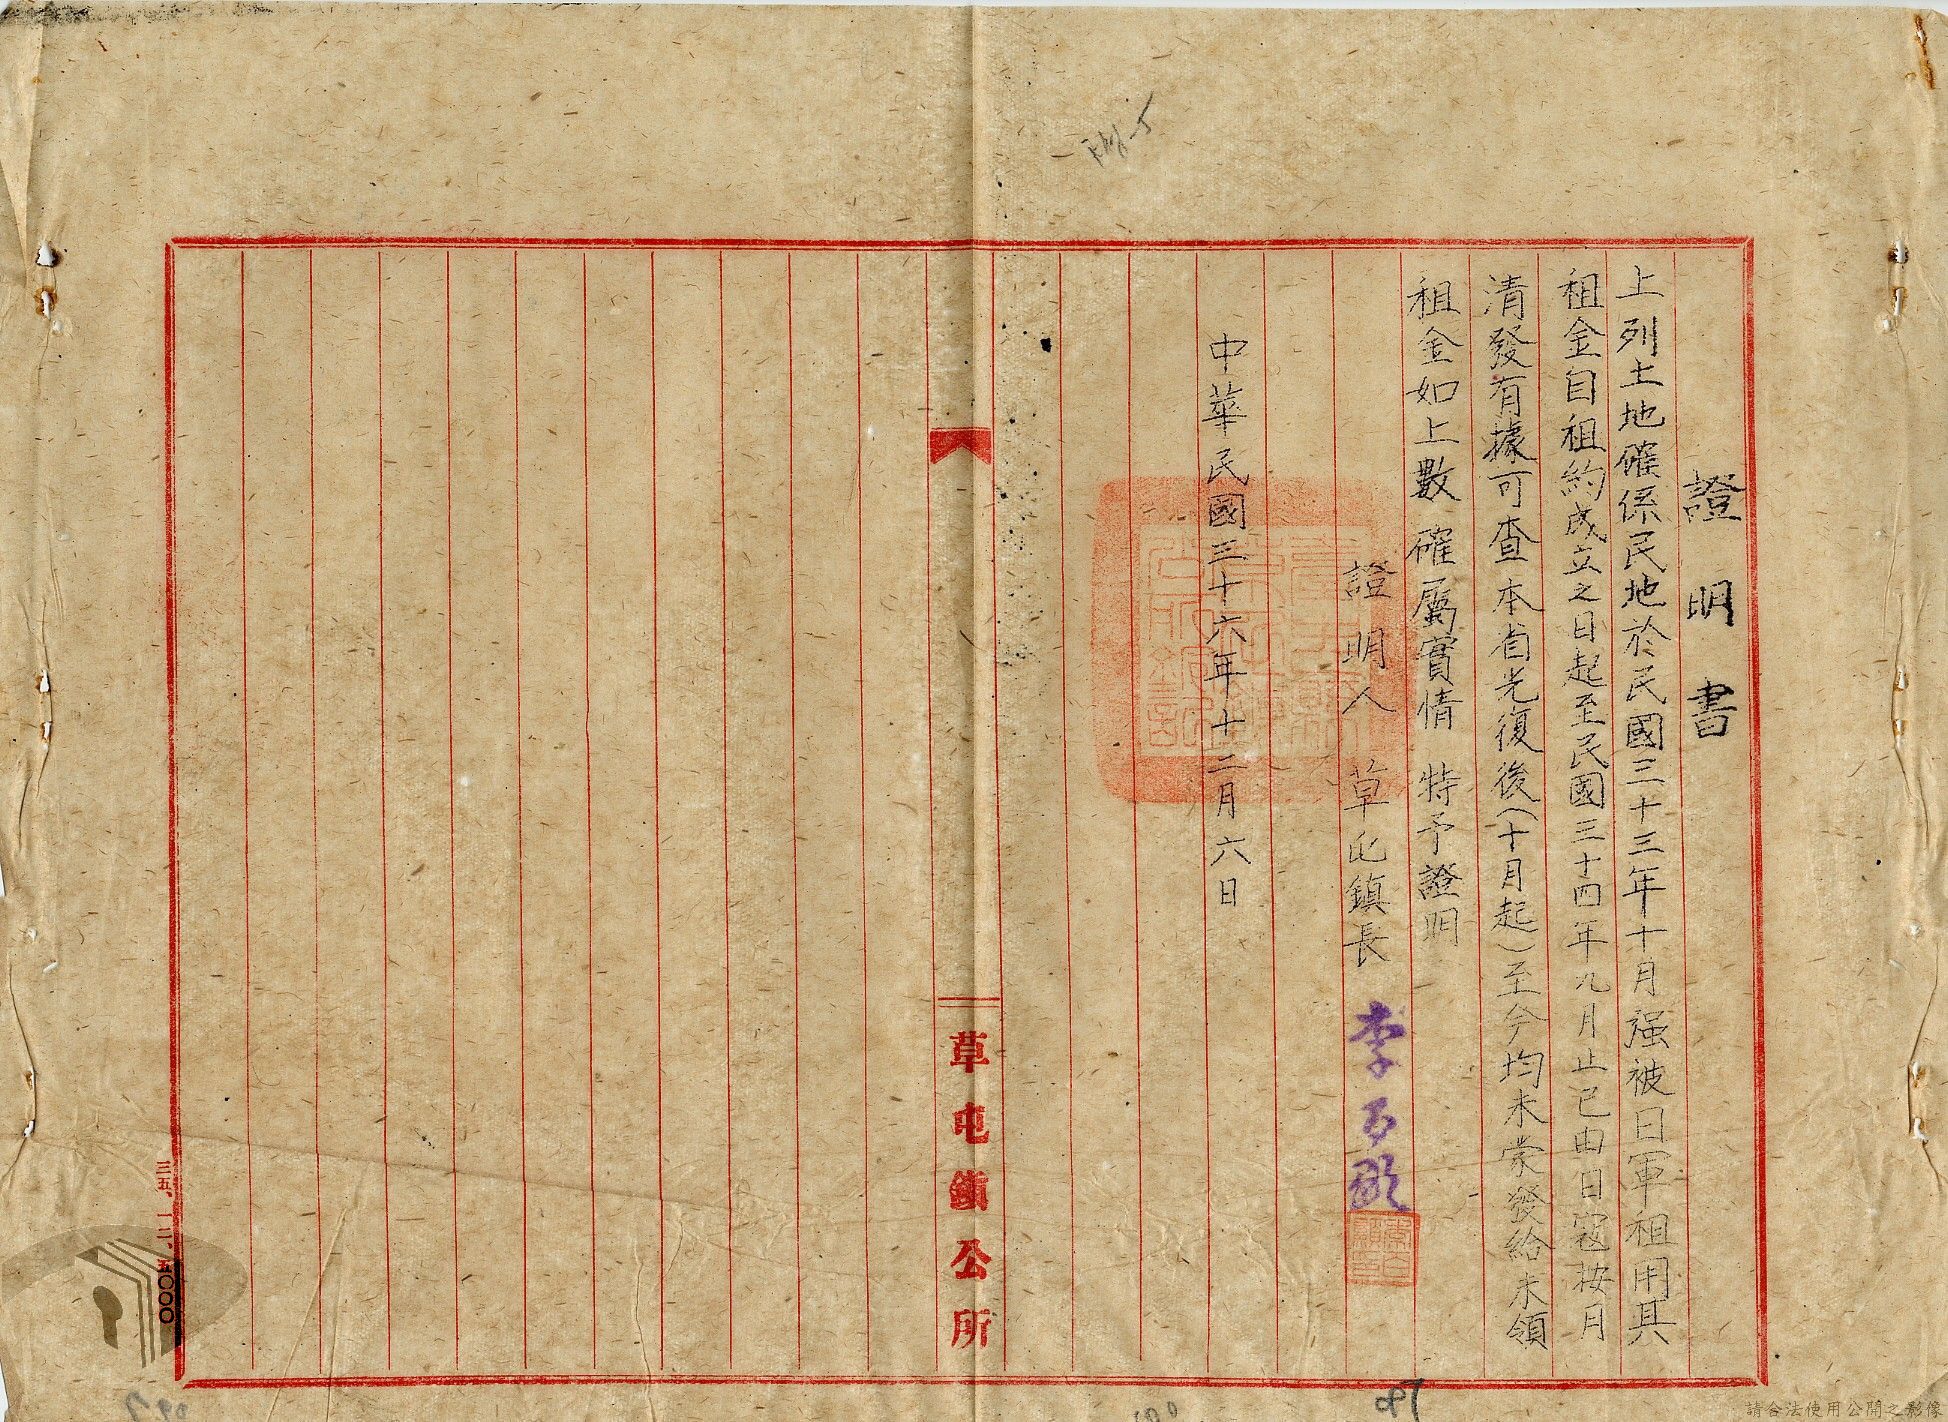 證明書
上列土地確係民地於民國三十三年十月强被日軍租用其
租金自租約成立之日起至民國三十四年九月止已由日寇按月
清發有據可查本省光復後(十月起)至今均未蒙發給未領
租金如上數確屬實情 特予證明
證明人 草屯鎮長 李
中華民國三十六年十二月六日
草屯鎮公所
三五、一二、五〇〇〇
請合法使用公開之影像